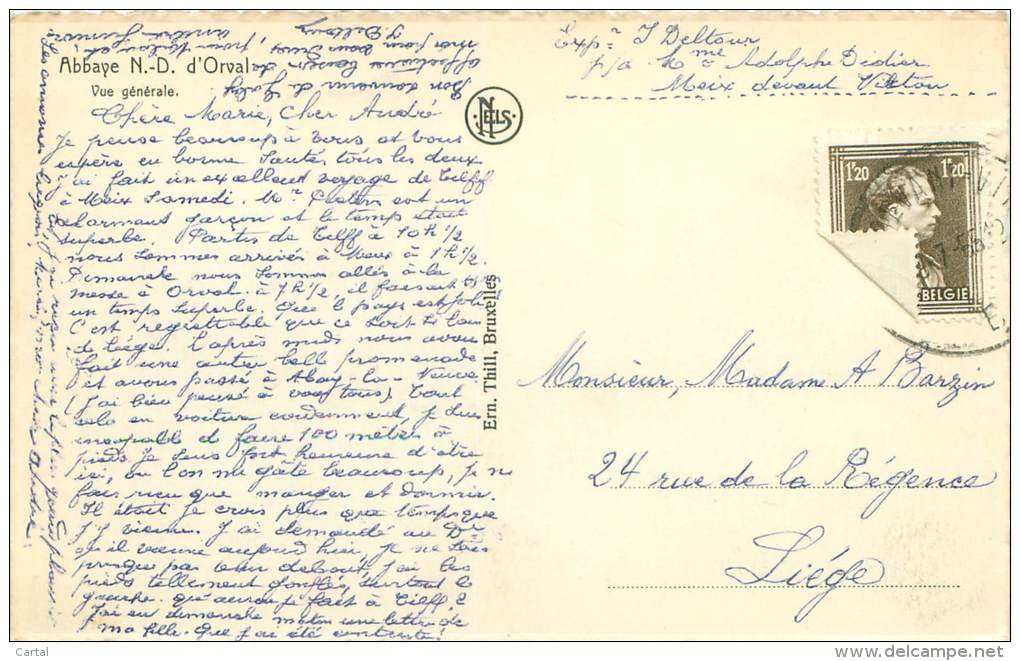 Abbaye N.-D. d'Orval
Vue générale.
Chère Marie, Cher André
Je pense beaucoup à vous et vous
espère en bonne santé, tous les deux
J'ai fait un excellent voyage de Tilff
à Meix Samedi. Mr est un
charmant garçon et le temps était
superbe. Partis de Tilff à 10h ½
nous sommes arrivés à Meix à 1h ½.
Dimanche nous sommes allés à la
messe à Orval à 7h ½, il faisait
un temps superbe. Que le pays est joli
C'est regrettable que ce soit si loin
de Liége. L'après midi nous avons
fait une autre belle promenade
et avons passé à Abay-la-Neuve
(j'ai bien pensé à vous tous). Tout
cela en voiture évidemment, je suis
incapable de faire 100 mètres à
pieds. Je suis fort heureuse d'être
ici, ou l'on me gâte beaucoup, je ne
fais rien que manger et dormir.
Il était je crois plus que temps que
j'y vienne. J'ai demandé au Dr
qu'il vienne aujourd'hui, je ne sais
presque pas tenir debout, j'ai les
pieds tellement gonflés, surtout le
gauche. Qu'aurais-je fait à Tilff?
J'ai eu dimanche matin une lettre de
ma fille. Que j'ai été contente!
NELS
Ern. Thill, Bruxelles
Expr J Deltour
p/a Mme Adolphe Didier
Meix devant Virton
1F20 1F20
BELGIE
Monsieur, Madame A Barzin
24 rue de la Régence
Liége
Cartal
www.delcampe.net